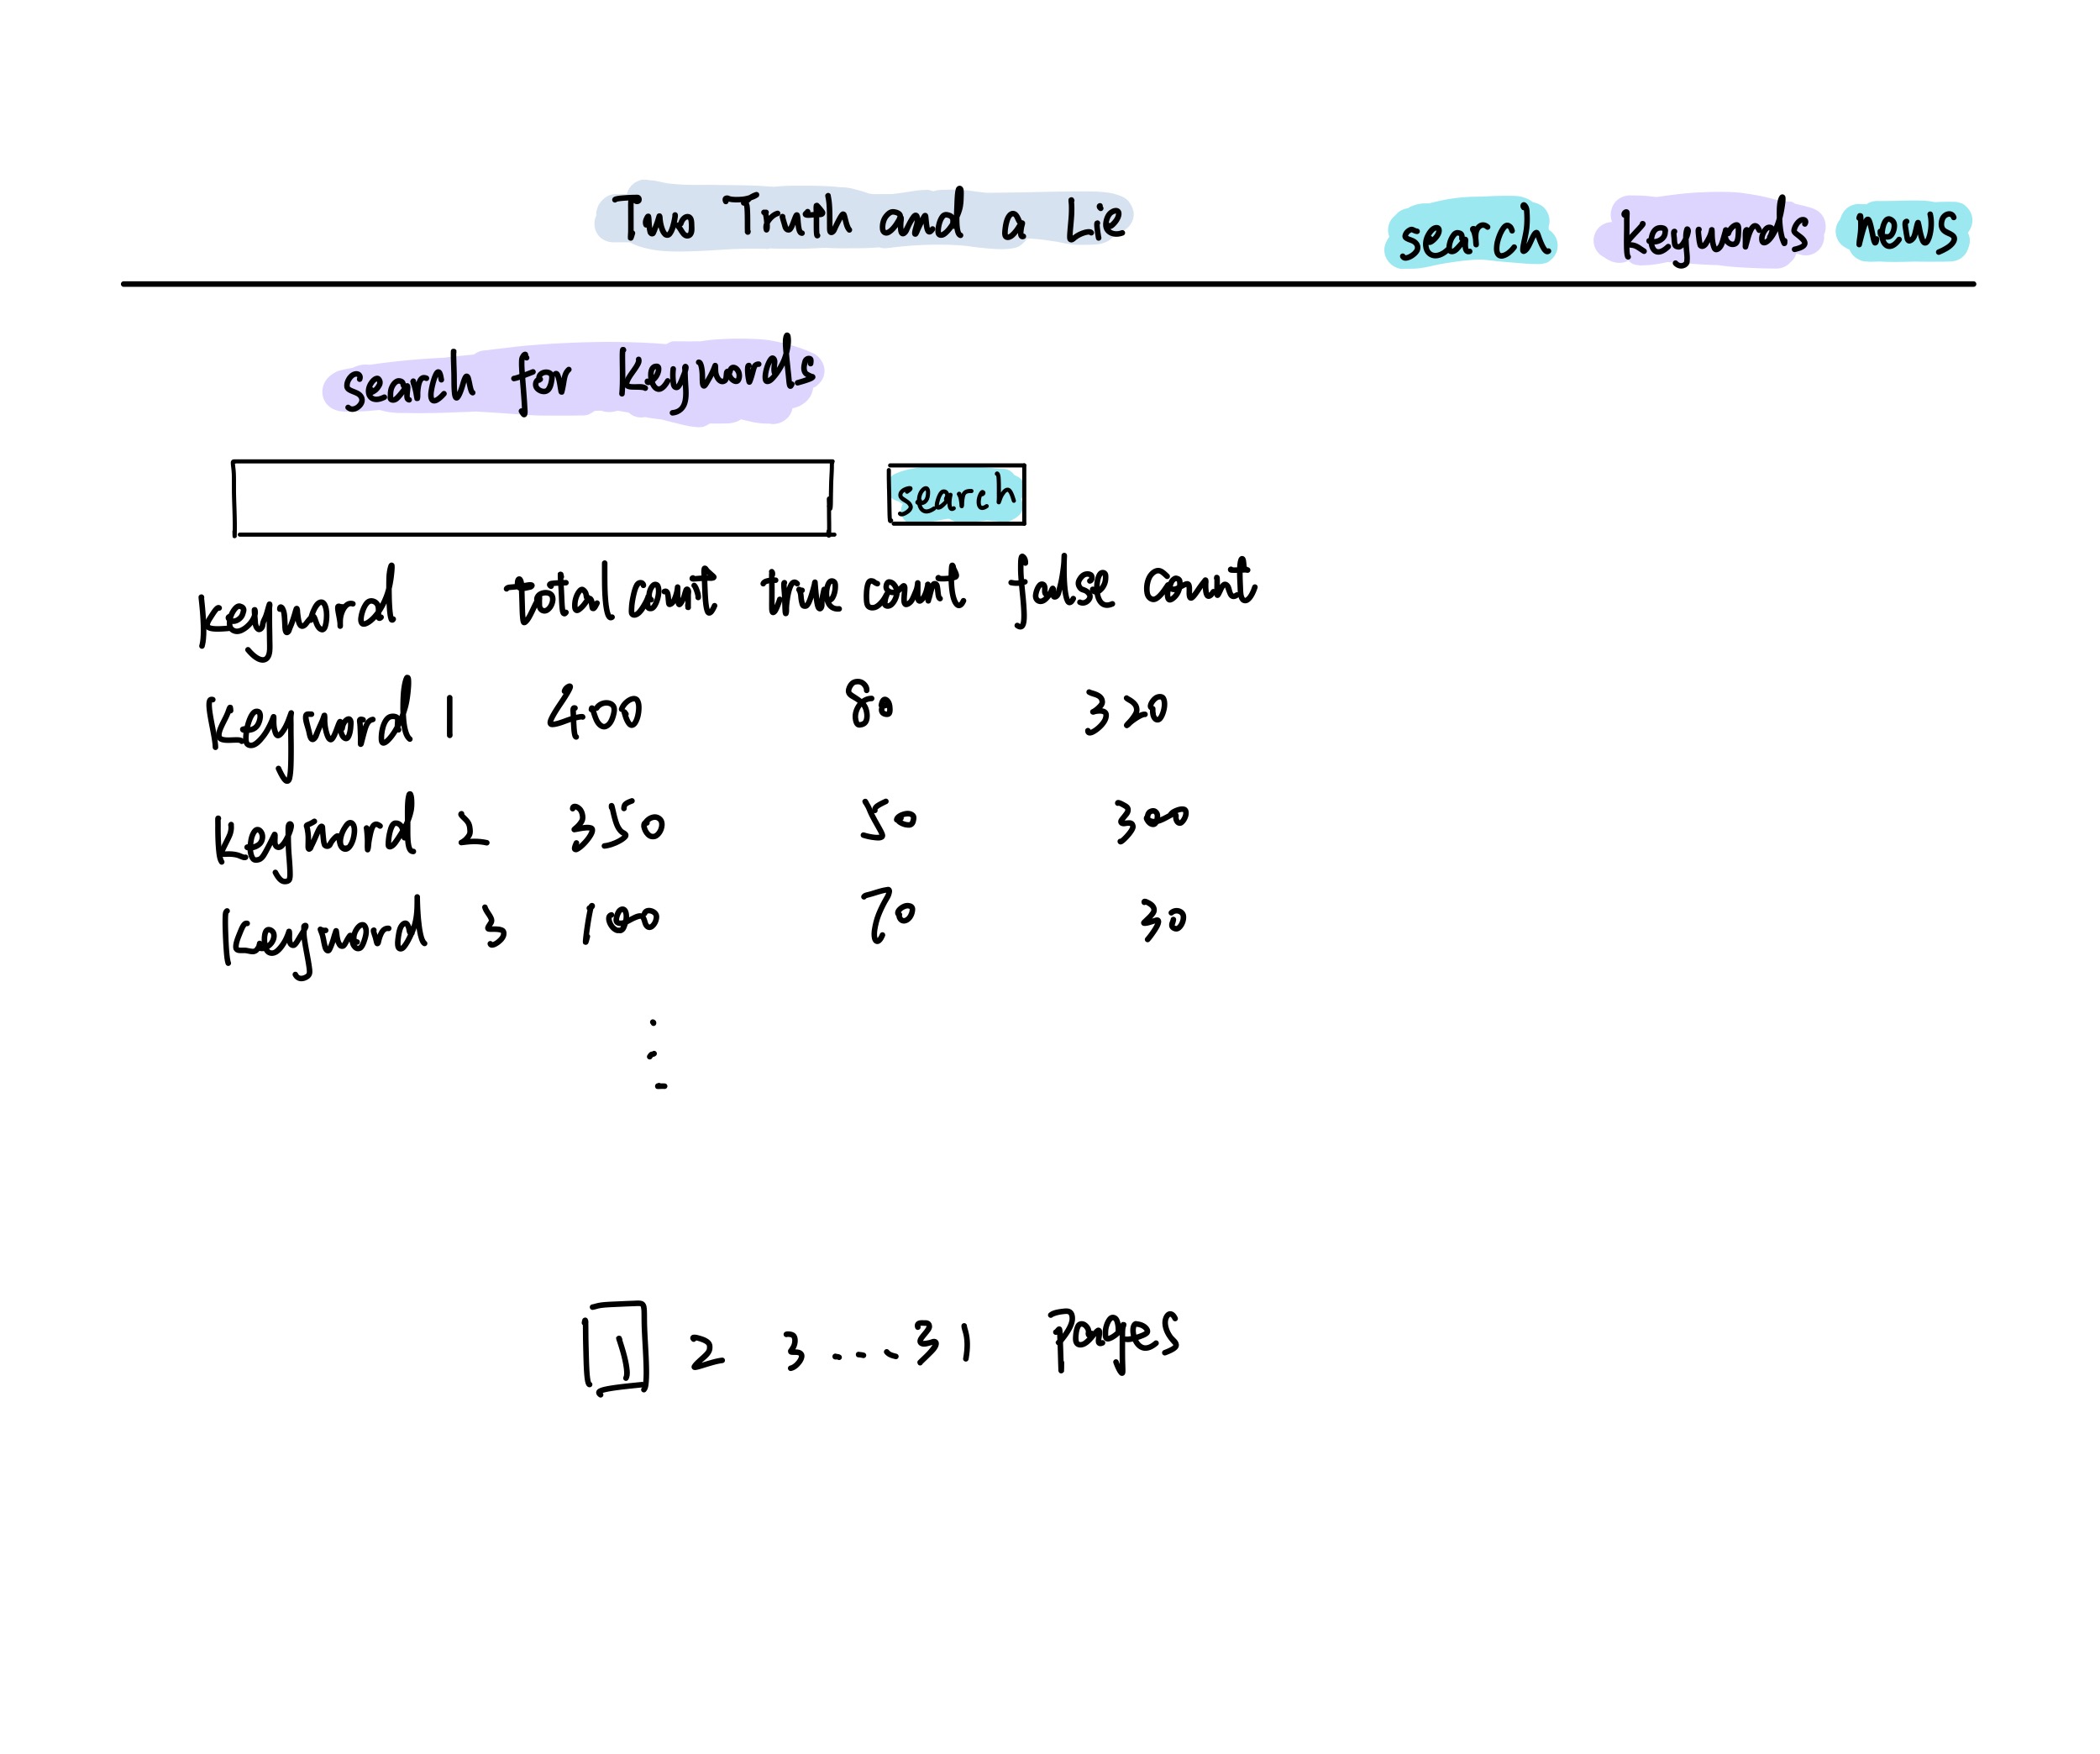 Two Truth and a Lie search keywords news
search for keywords
search
keyword total count true count false count
Keyword 1 400 80 320
Keyword 2 350 50 300
Keyword 3 100 70 30
1 2 3 ... 31 pages